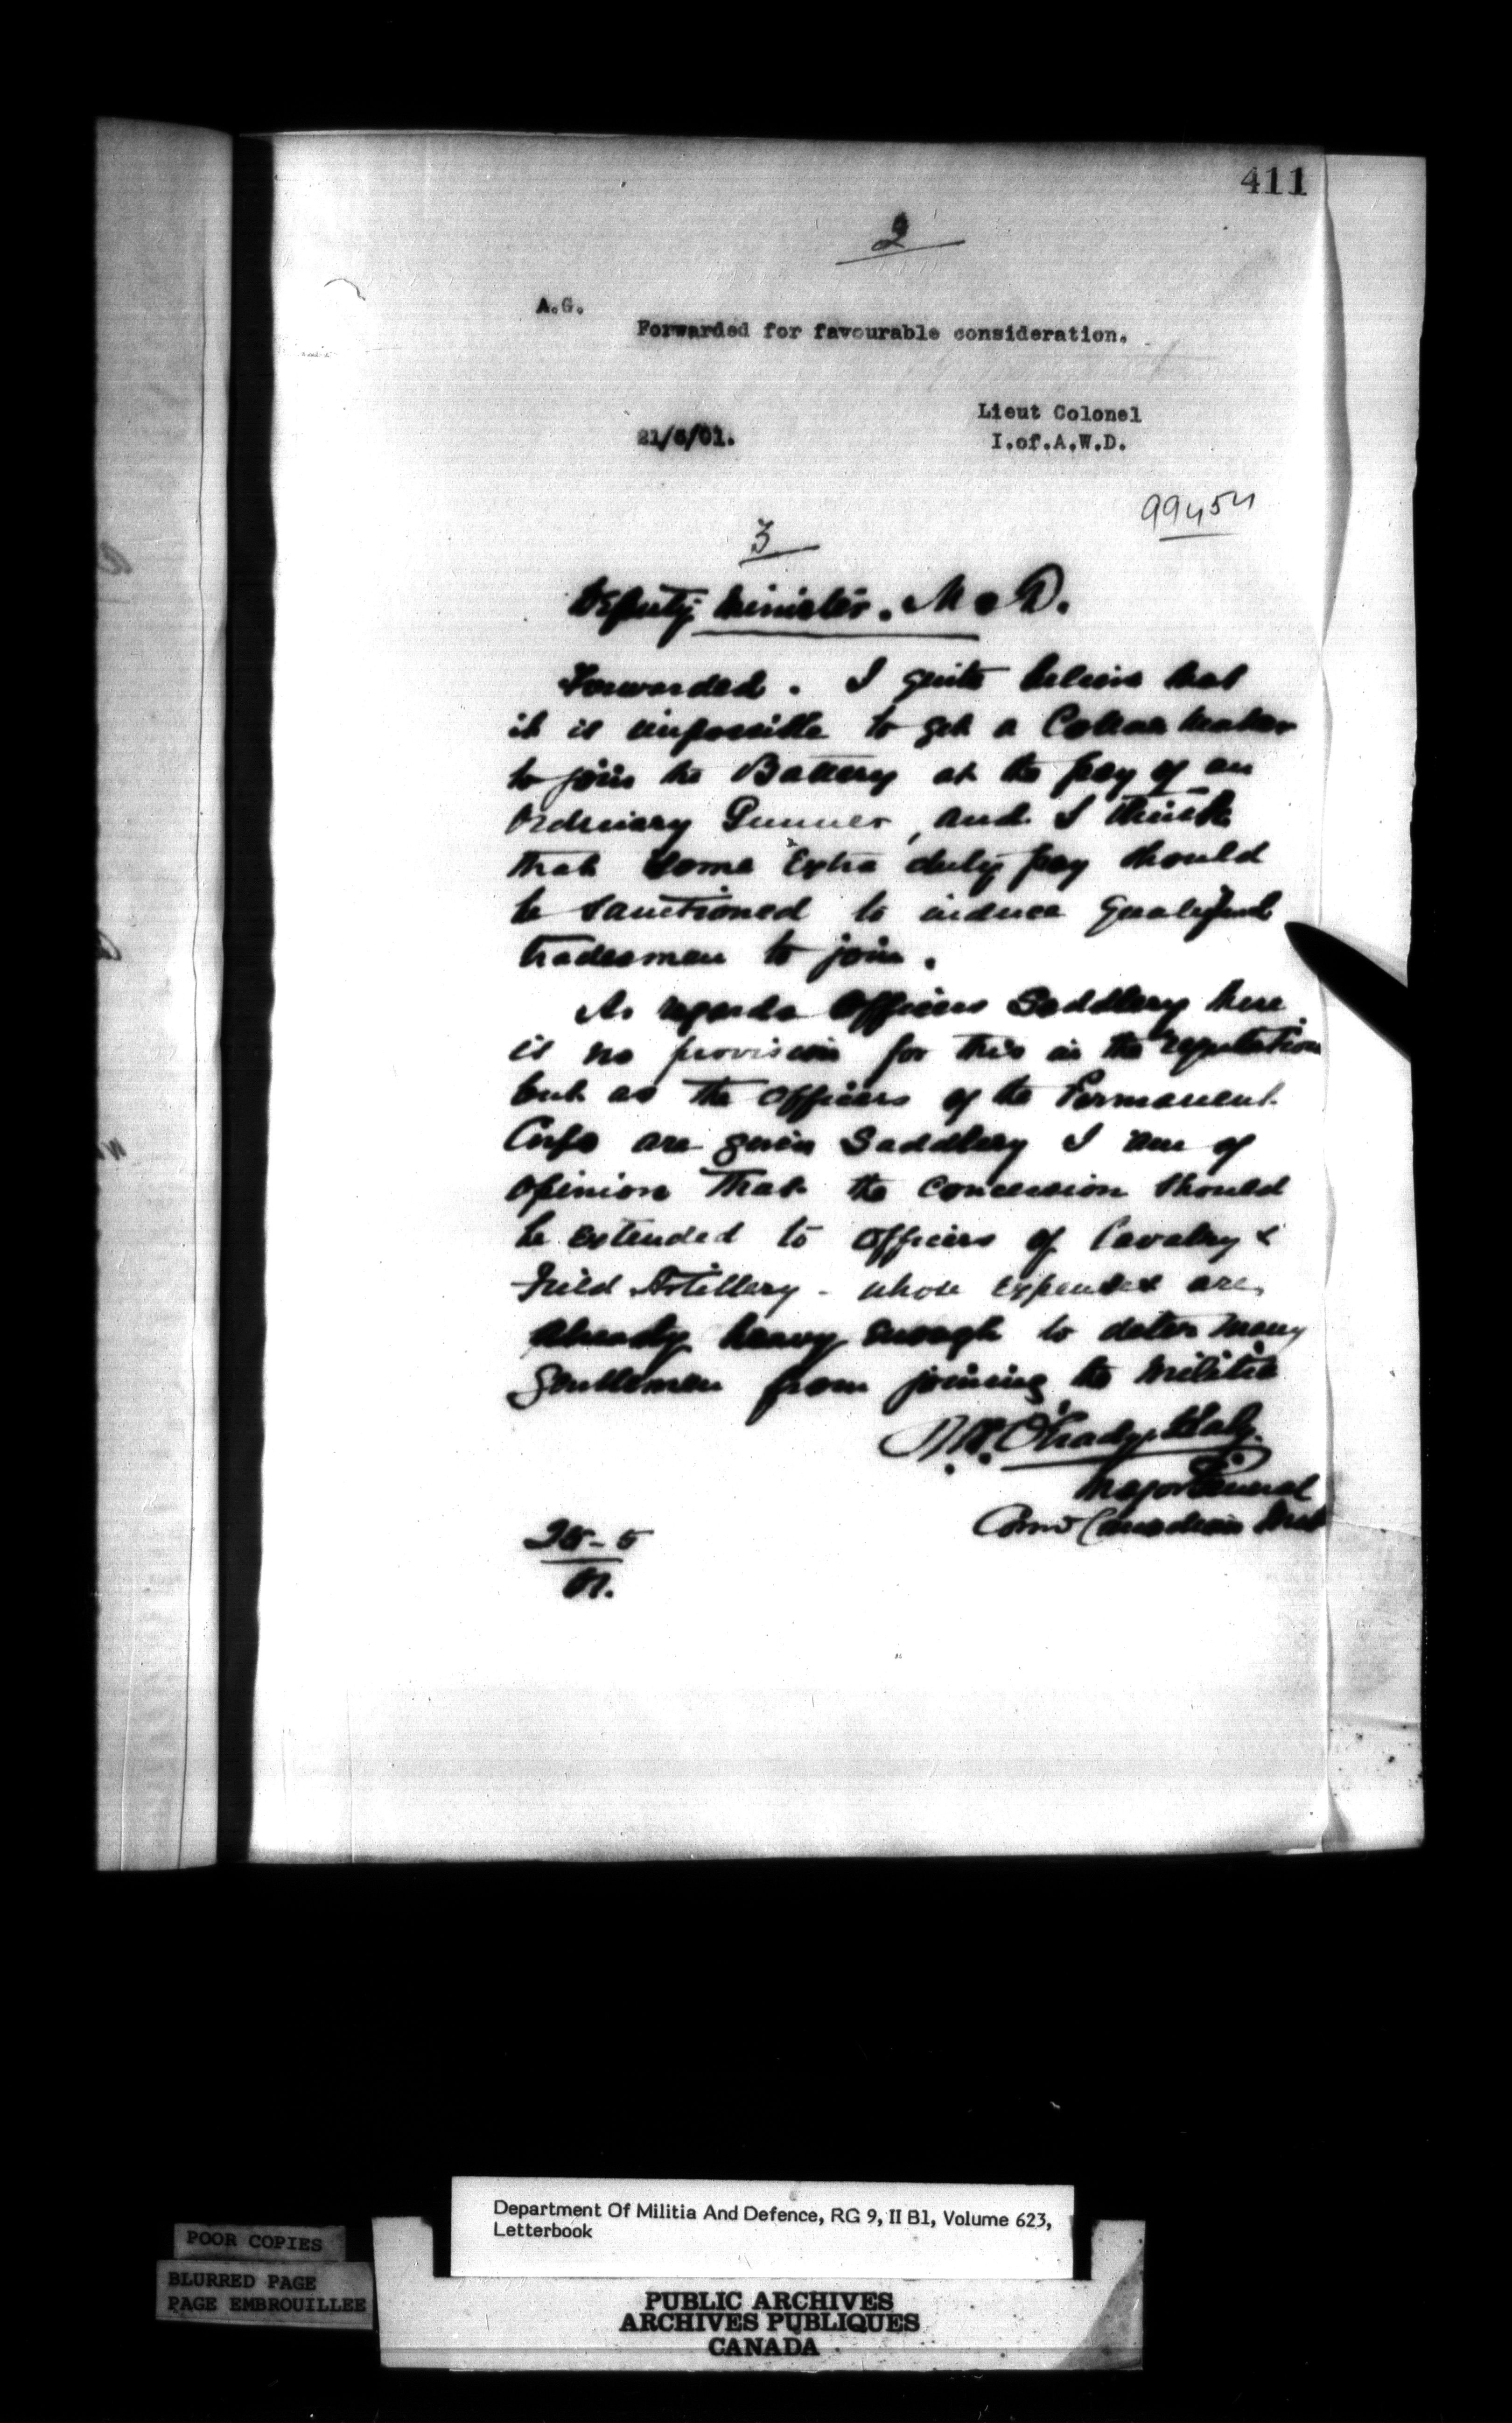 411
2
A.G.
Forwarded for favourable consideration.
Lieut Colonel
21/5/01.
I.of.A.W.D.
99454
3
Deputy Minister. M & D.
Forwarded. I quite believe that
it is impossible to get a Collar Maker
to join the Battery at the pay of an
Ordinary Gunner, and I think
that some Extra duty pay should
be sanctioned to induce qualified
tradesmen to join.
As regards Officers Saddlery there
is no provision for this in the regulations
but as the Officers of the Permanent
Corps are given Saddlery I am of
opinion that the concession should
be extended to Officers of Cavalry &
Field Artillery - whose expenses are
already heavy enough to deter many
gentlemen from joining the Militia
O'Grady Haly
Major General
Comg Canadian Mil
25-5
01.
Department Of Militia And Defence, RG 9, II B1, Volume 623,
Letterbook
POOR COPIES
BLURRED PAGE
PAGE EMBROUILLEE
PUBLIC ARCHIVES
ARCHIVES PUBLIQUES
CANADA